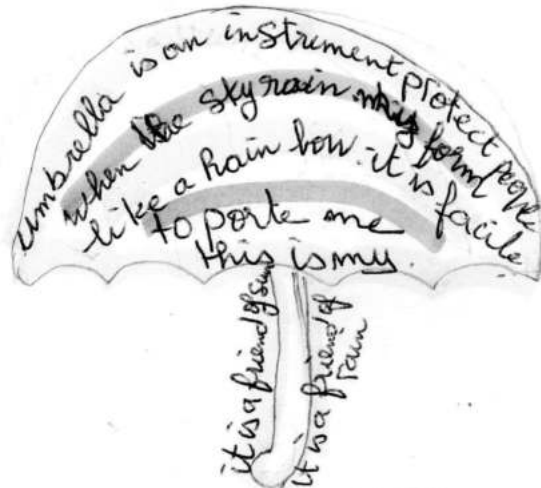 umbrella is an instrument protect people
when the sky rain my form
like a Rain bow. it is facile
to porte me
this is my
it is a friend of sun
it is a friend of rain